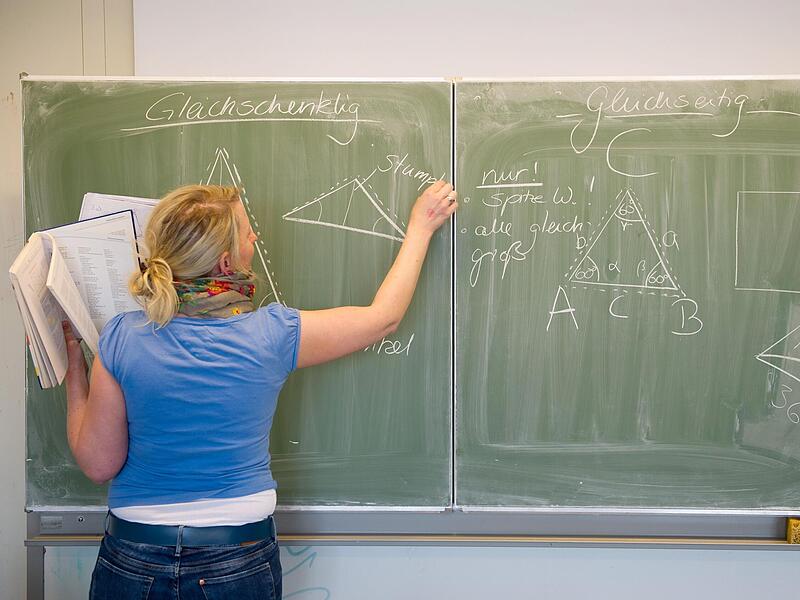 Gleichschenklig
Stumpf
Gleichseitig
C
nur!
• spitze W.!
• alle gleich
groß
60°
γ
b
a
60°
α
β
60°
A
C
B
36